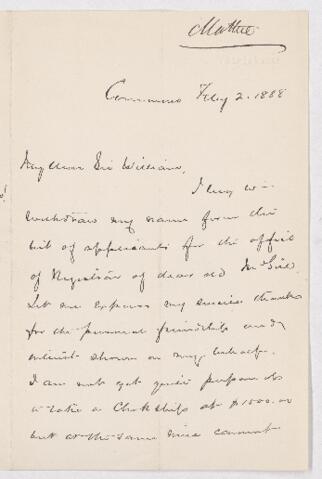 Commons Feby 2. 1888
My dear Sir William,
I beg to
withdraw my name from the
list of applicants for the office
of Registrar of dear old McGill.
Let me express my sincere thanks
for the personal friendship and
interest shown on my behalf.
I am not yet quite prepared
to take a Clerkship at $1000.00
but at the same time cannot